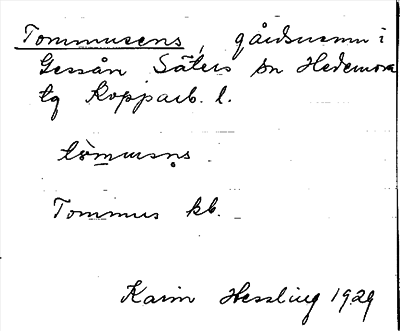 Tommusens, gårdsnamn i
Gessån Säters sn Hedemora
tg Kopparb. l.
tòmusns.
Tommus kb.
Karin Hessling 1929